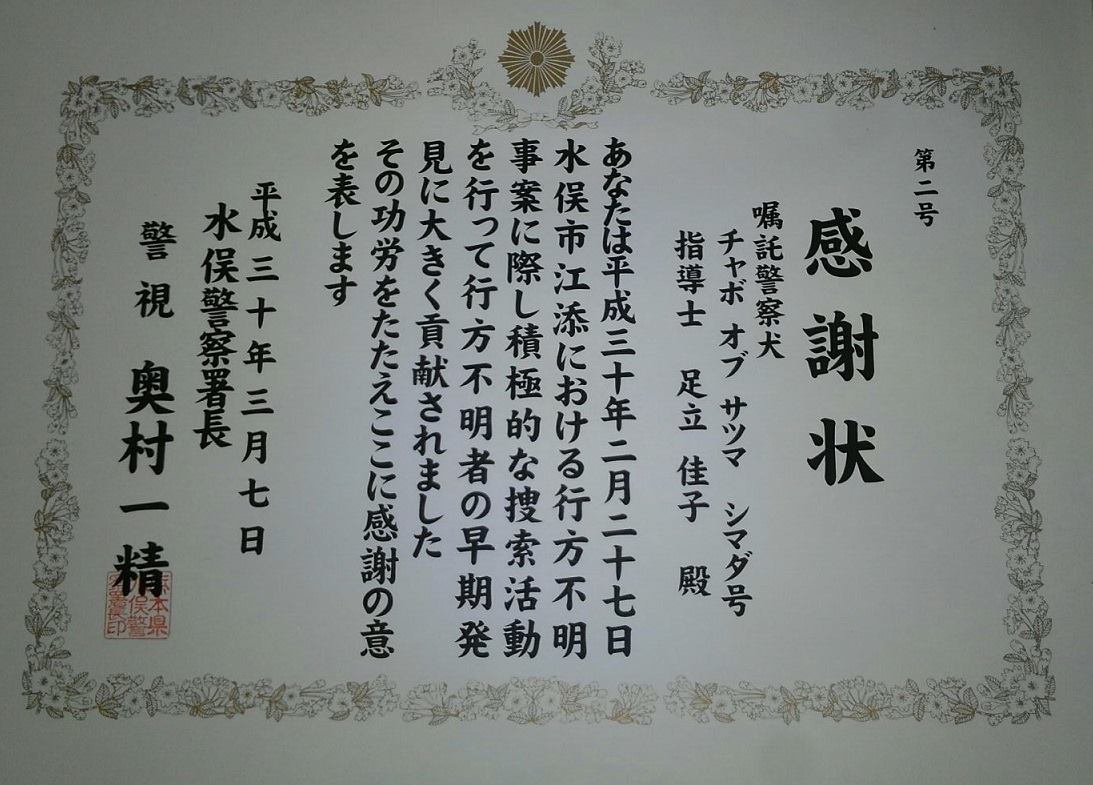 第二号
感謝状
嘱託警察犬
チャボ オブ サツマ シマダ号
指導士 足立 佳子 殿
あなたは平成三十年二月二十七日
水俣市江添における行方不明
事案に際し積極的な捜索活動
を行って行方不明者の早期発
見に大きく貢献されました
その功労をたたえここに感謝の意
を表します
平成三十年三月七日
水俣警察署長
警視 奥村一精